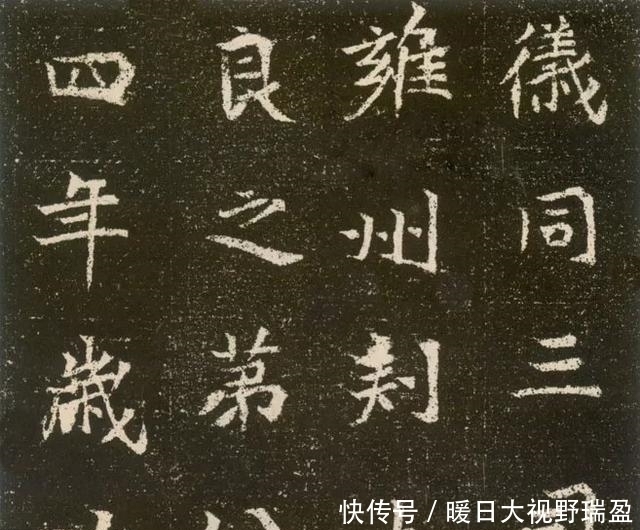 儀同三
雍州刾
良之苐
四年歲
快传号/暖日大视野瑞盈